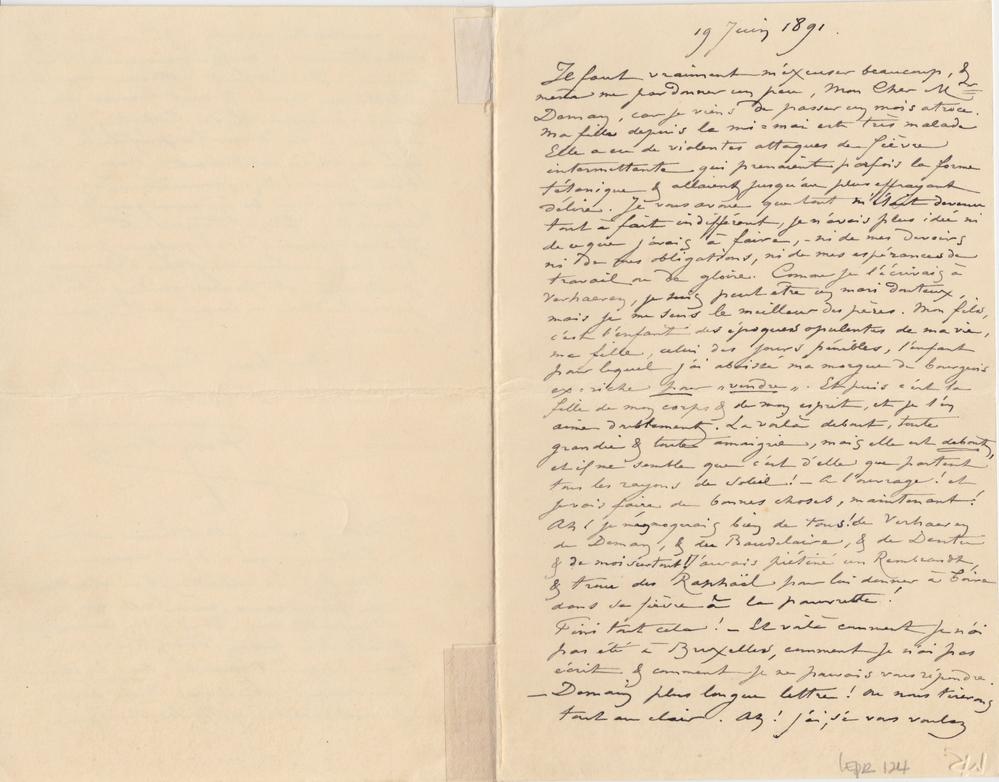 19 Juin 1891.
Il faut vraiment m'éxcuser beaucoup, &
même me pardonner un peu, Mon Cher Mr
Deman, car je viens de passer un mois atroce.
Ma fille depuis la mi-mai est très malade
Elle a eu de violentes attaques de fièvre
intermittente qui prenaient parfois la forme
tétanique & allaient jusqu'au plus effrayant
délire. Je vous avoue que tout m'était devenu
tout à fait indifférent, je n'avais plus idée ni
de ce que j'avais à faire, - ni de mes devoirs
ni de mes obligations, ni de mes espérances de
travail ou de gloire. Comme je l'écrivais à
Verhaeren, je suis peut etre un mari douteux,
mais je me sens le meilleur des pères. Mon fils,
c'est l'enfant des époques opulentes de ma vie,
ma fille, celui des jours pénibles, l'enfant
pour lequel j'ai abaissé ma morgue de bourgeois
ex-riche pour "vendre". Et puis c'est la
fille de mon corps & de mon esprit, et je l'en
aime doublement. La voilà debout, toute
grandie & toute amaigrie, mais elle est debout,
et il me semble que c'est d'elle que partent
tous les rayons de soleil! - A l'ouvrage! et
je vais faire de bonnes choses, maintenant!
Ah! je bien de tous! de Verhaeren
de Deman, & de Baudelaire, & de Dentu
& de moi surtout! J'aurais piétiné un Rembrandt,
& troué des Raphaël pour lui donner à boire
dans sa fièvre à la pauvrette!
Fini tout cela! - Et voilà comment je n'ai
pas été à Bruxelles, comment je n'ai pas
écrit & comment je ne pouvais vous répendre.
- Demain plus longue lettre! où nous tirerons
tout au clair. Ah! j'ai, si vous voulez
LEPR 124